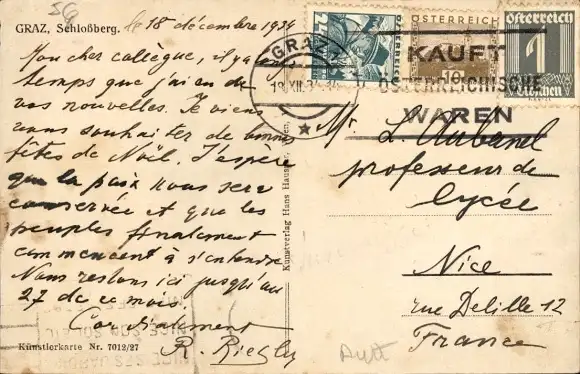 56
GRAZ, Schloßberg. le 18 décembre 1934
Mon cher collègue, il y a long
temps que j'ai eu de
vos nouvelles. Je viens
vous souhaiter de bonnes
fêtes de Noël. J'espère
que la paix nous sera
conservée et que les
peuples finalement
commencent à s'entendre
Nous restons ici jusqu'au
27 de ce mois.
Cordialement
R. Riegly
Künstlerkarte Nr. 7012/27
Künstverlag Hans Haus
GRAZ
18.XII.34
ÖSTERREICH
österreich
1
Groschen
KAUFT
ÖSTERREICHISCHE
WAREN
Mr L. Aubanel
professeur de
lycée
Nice
rue Delille 12
France